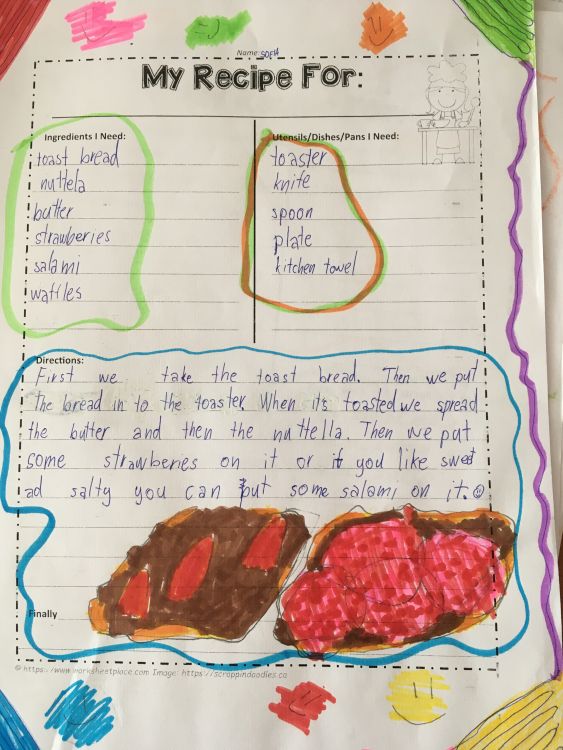 Name: SOFIA
My Recipe For:
Ingredients I Need:
toast bread
nuttela
butter
strawberies
salami
waffles
Utensils/Dishes/Pans I Need:
toaster
knife
spoon
plate
kitchen towel
Directions:
First we take the toast bread. Then we put
the bread in to the toaster. When its toasted we spread
the butter and then the nuttella. Then we put
some strawberies on it or if you like sweet
ad salty you can put some salami on it.
Finally
© https://www.worksheetplace.com Image: https://scrappindoodles.ca